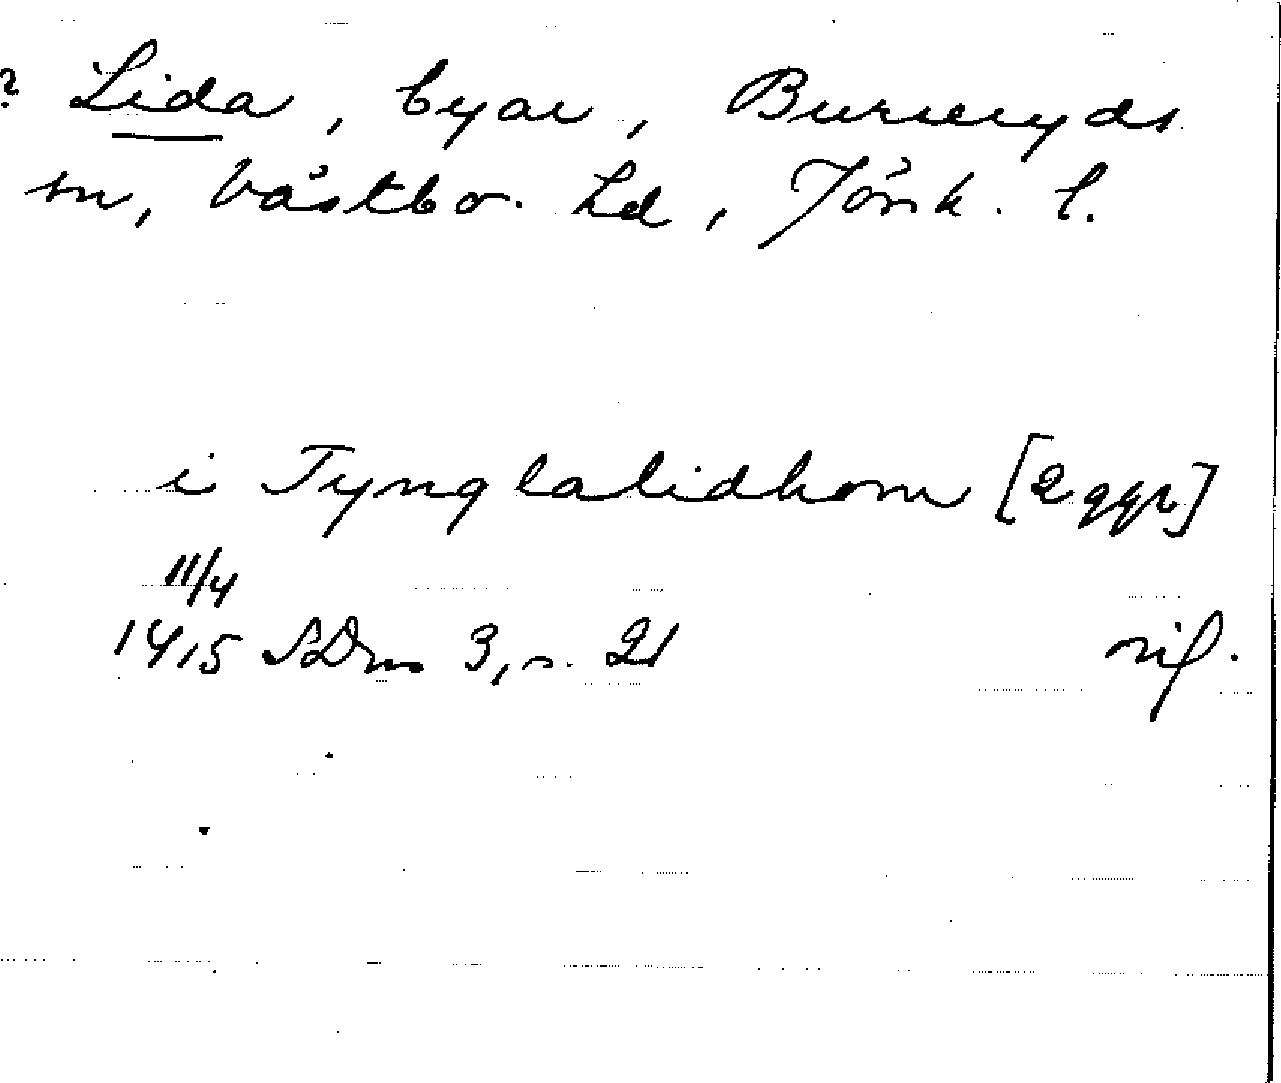 ? Lida, byar, Burseryds
sn, Västbo hd, Jönk. l.
i Tynglalidhom [2 ggr]
11/4
1415 SDns 3, s. 21 rif.